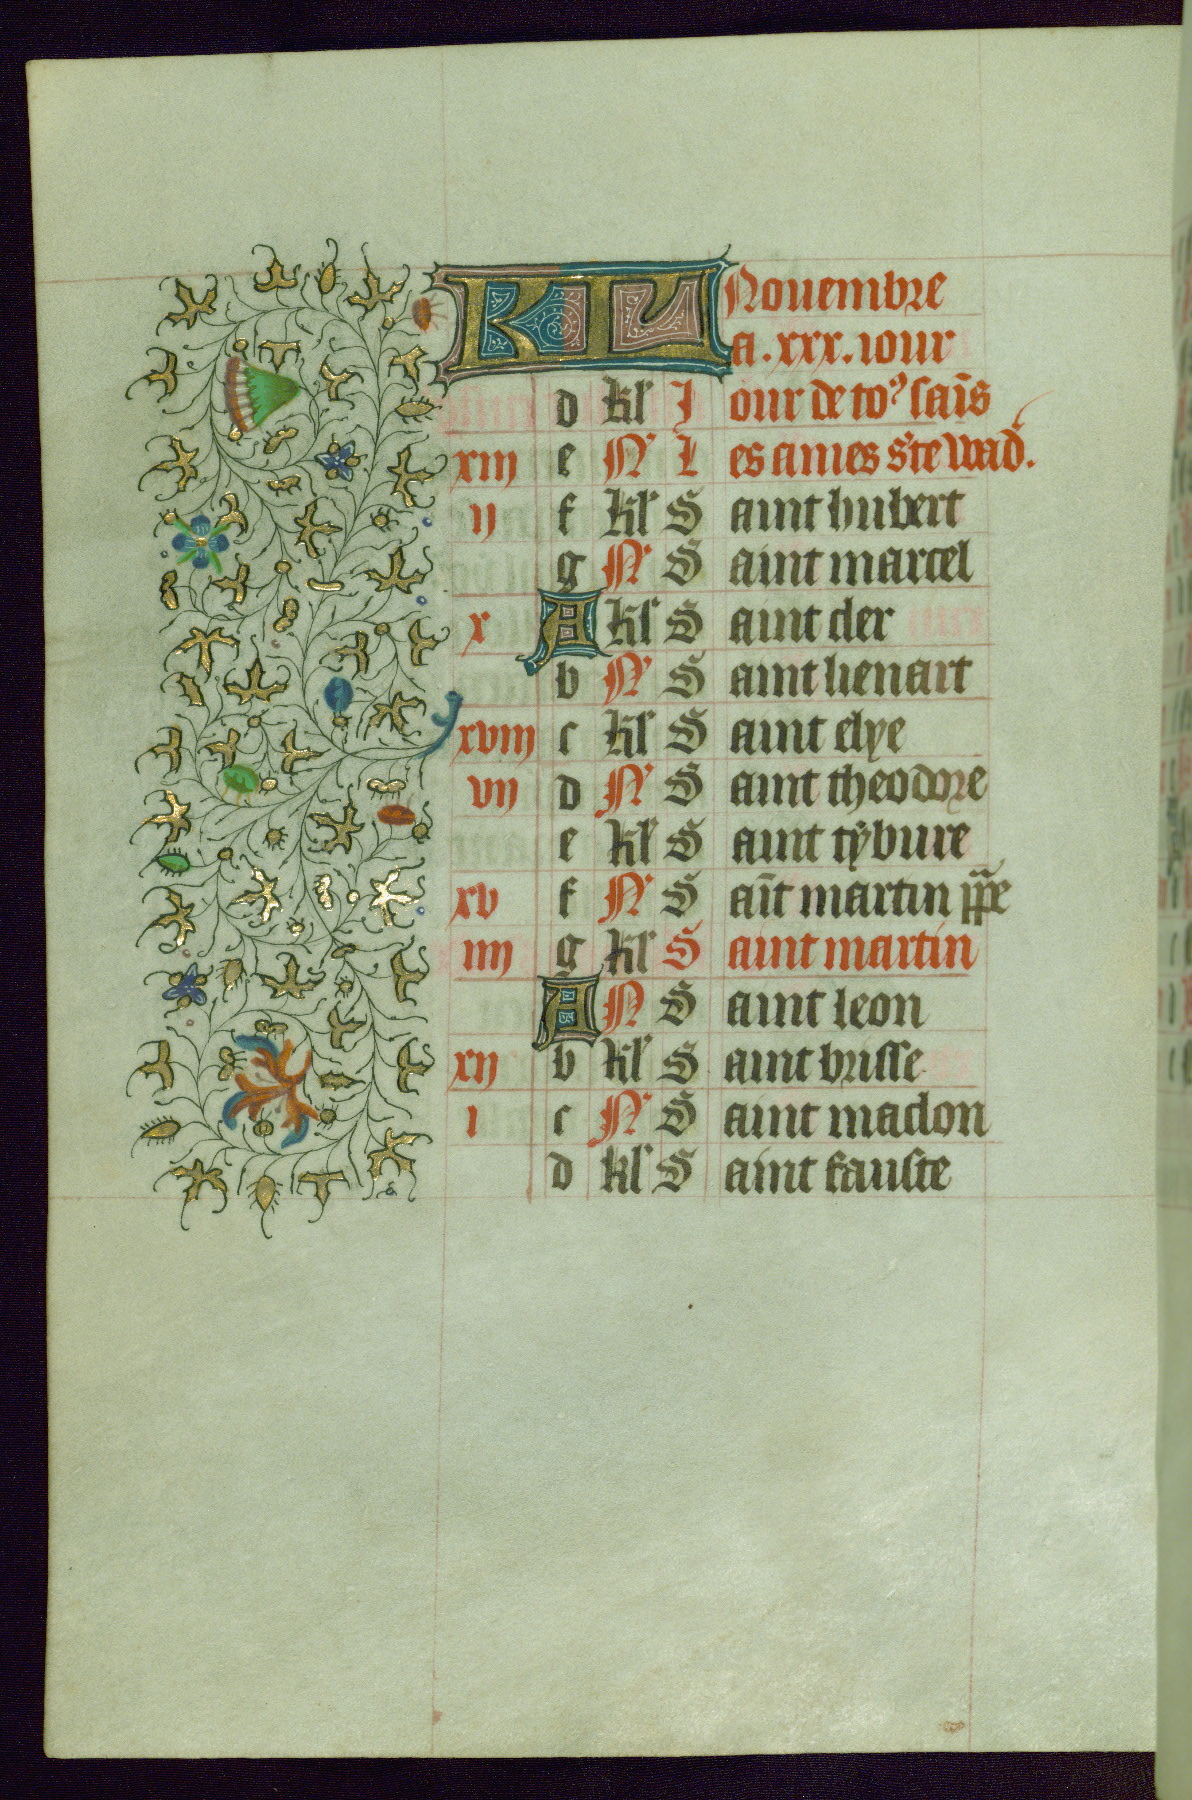 KL Nouembre
a . xxx . iour
d kl' I our de to9 sais
xiii e N' L es ames s'te wad'.
ii f kl' S aint hubert
g N' S aint marcel
x A kl' S aint cler
b N' S aint lienart
xviii c kl' S aint elye
vii d N' S aint theodore
e kl' S aint tybure
xv f N' S ait martin ppe
iiii g kl' S aint martin
A N S aint leon
xii b kl' S aint brisse
i c N' S aint maclon
d kl' S aint fauste